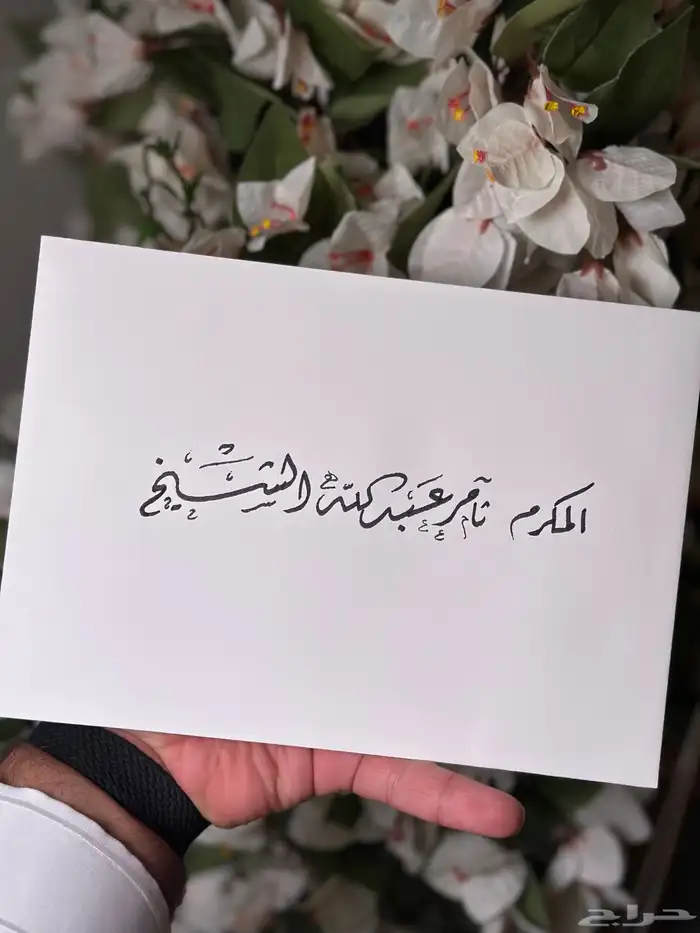 المكرم ثامر عبدالله الشيخ
حراج